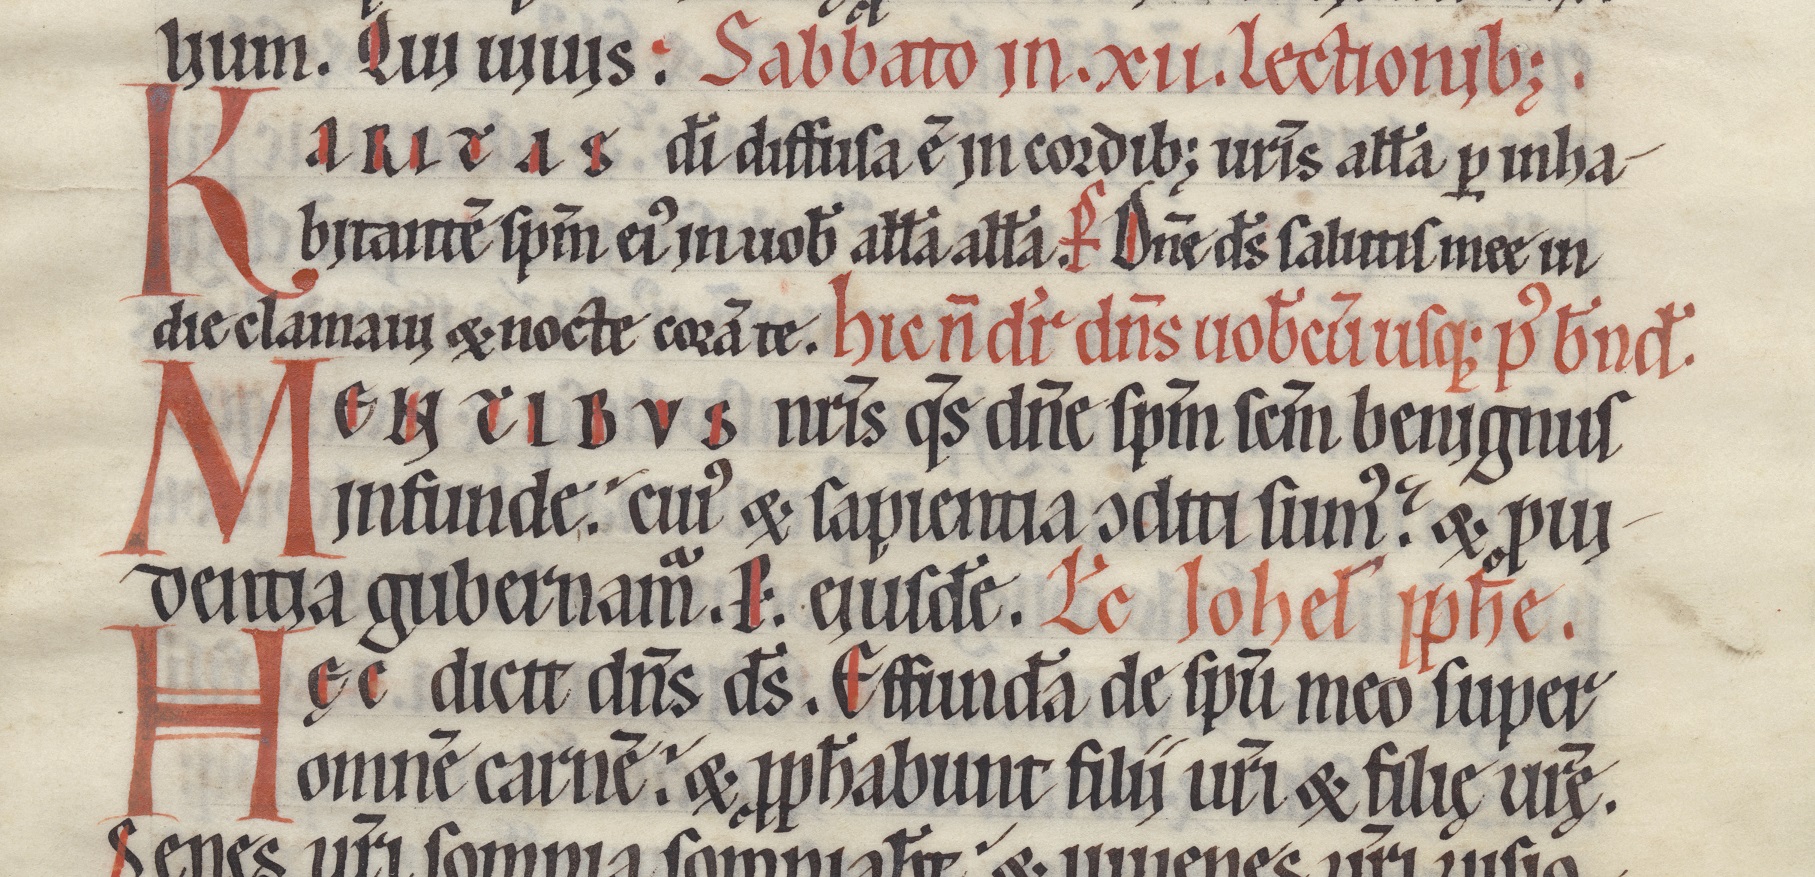 uum. Qui uiuis: Sabbato in .xii. lectionib; .
KARITAS dī diffusa ē in cordib; urīs allā p inha-
bitantē spm̄ ei⁹ in uob̄ allā allā. P̄ Dn̄e ds̄ salutis mee in
die clamaui & nocte corā te. hic n̄ dr̄ dn̄s uob̄cū usq; p⁹ b̄nd̄.
MENTIBVS nrīs qs̄ dn̄e spm̄ scm̄ benignus
infunde. cui⁹ & sapientia ↄditi sum⁹. & ꝓui-
dentia gubernamᵃ. P̄. eiusdē. Lc̄ Iohel ꝓph̄e.
HEC dicit dn̄s ds̄. Effundā de spū meo super
omnē carnē. & ꝓph̄abunt filii urī & filię urę̄.
Senes urī somnia somniab̄t. & iuuenes urī uisio